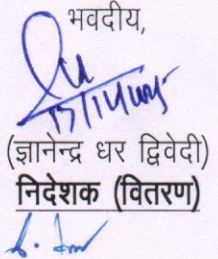 भवदीय,
(ज्ञानेन्द्र धर द्विवेदी)
निदेशक (वितरण)